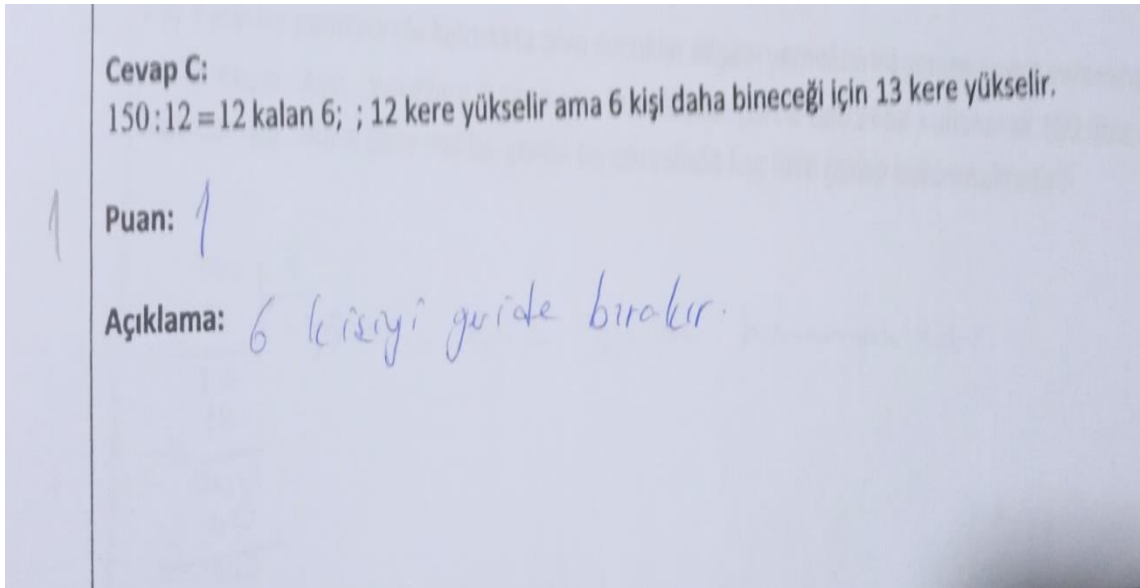 Cevap C:
150:12=12 kalan 6; ; 12 kere yükselir ama 6 kişi daha bineceği için 13 kere yükselir.
1 Puan: 1
Açıklama: 6 kişiyi geride bırakır.